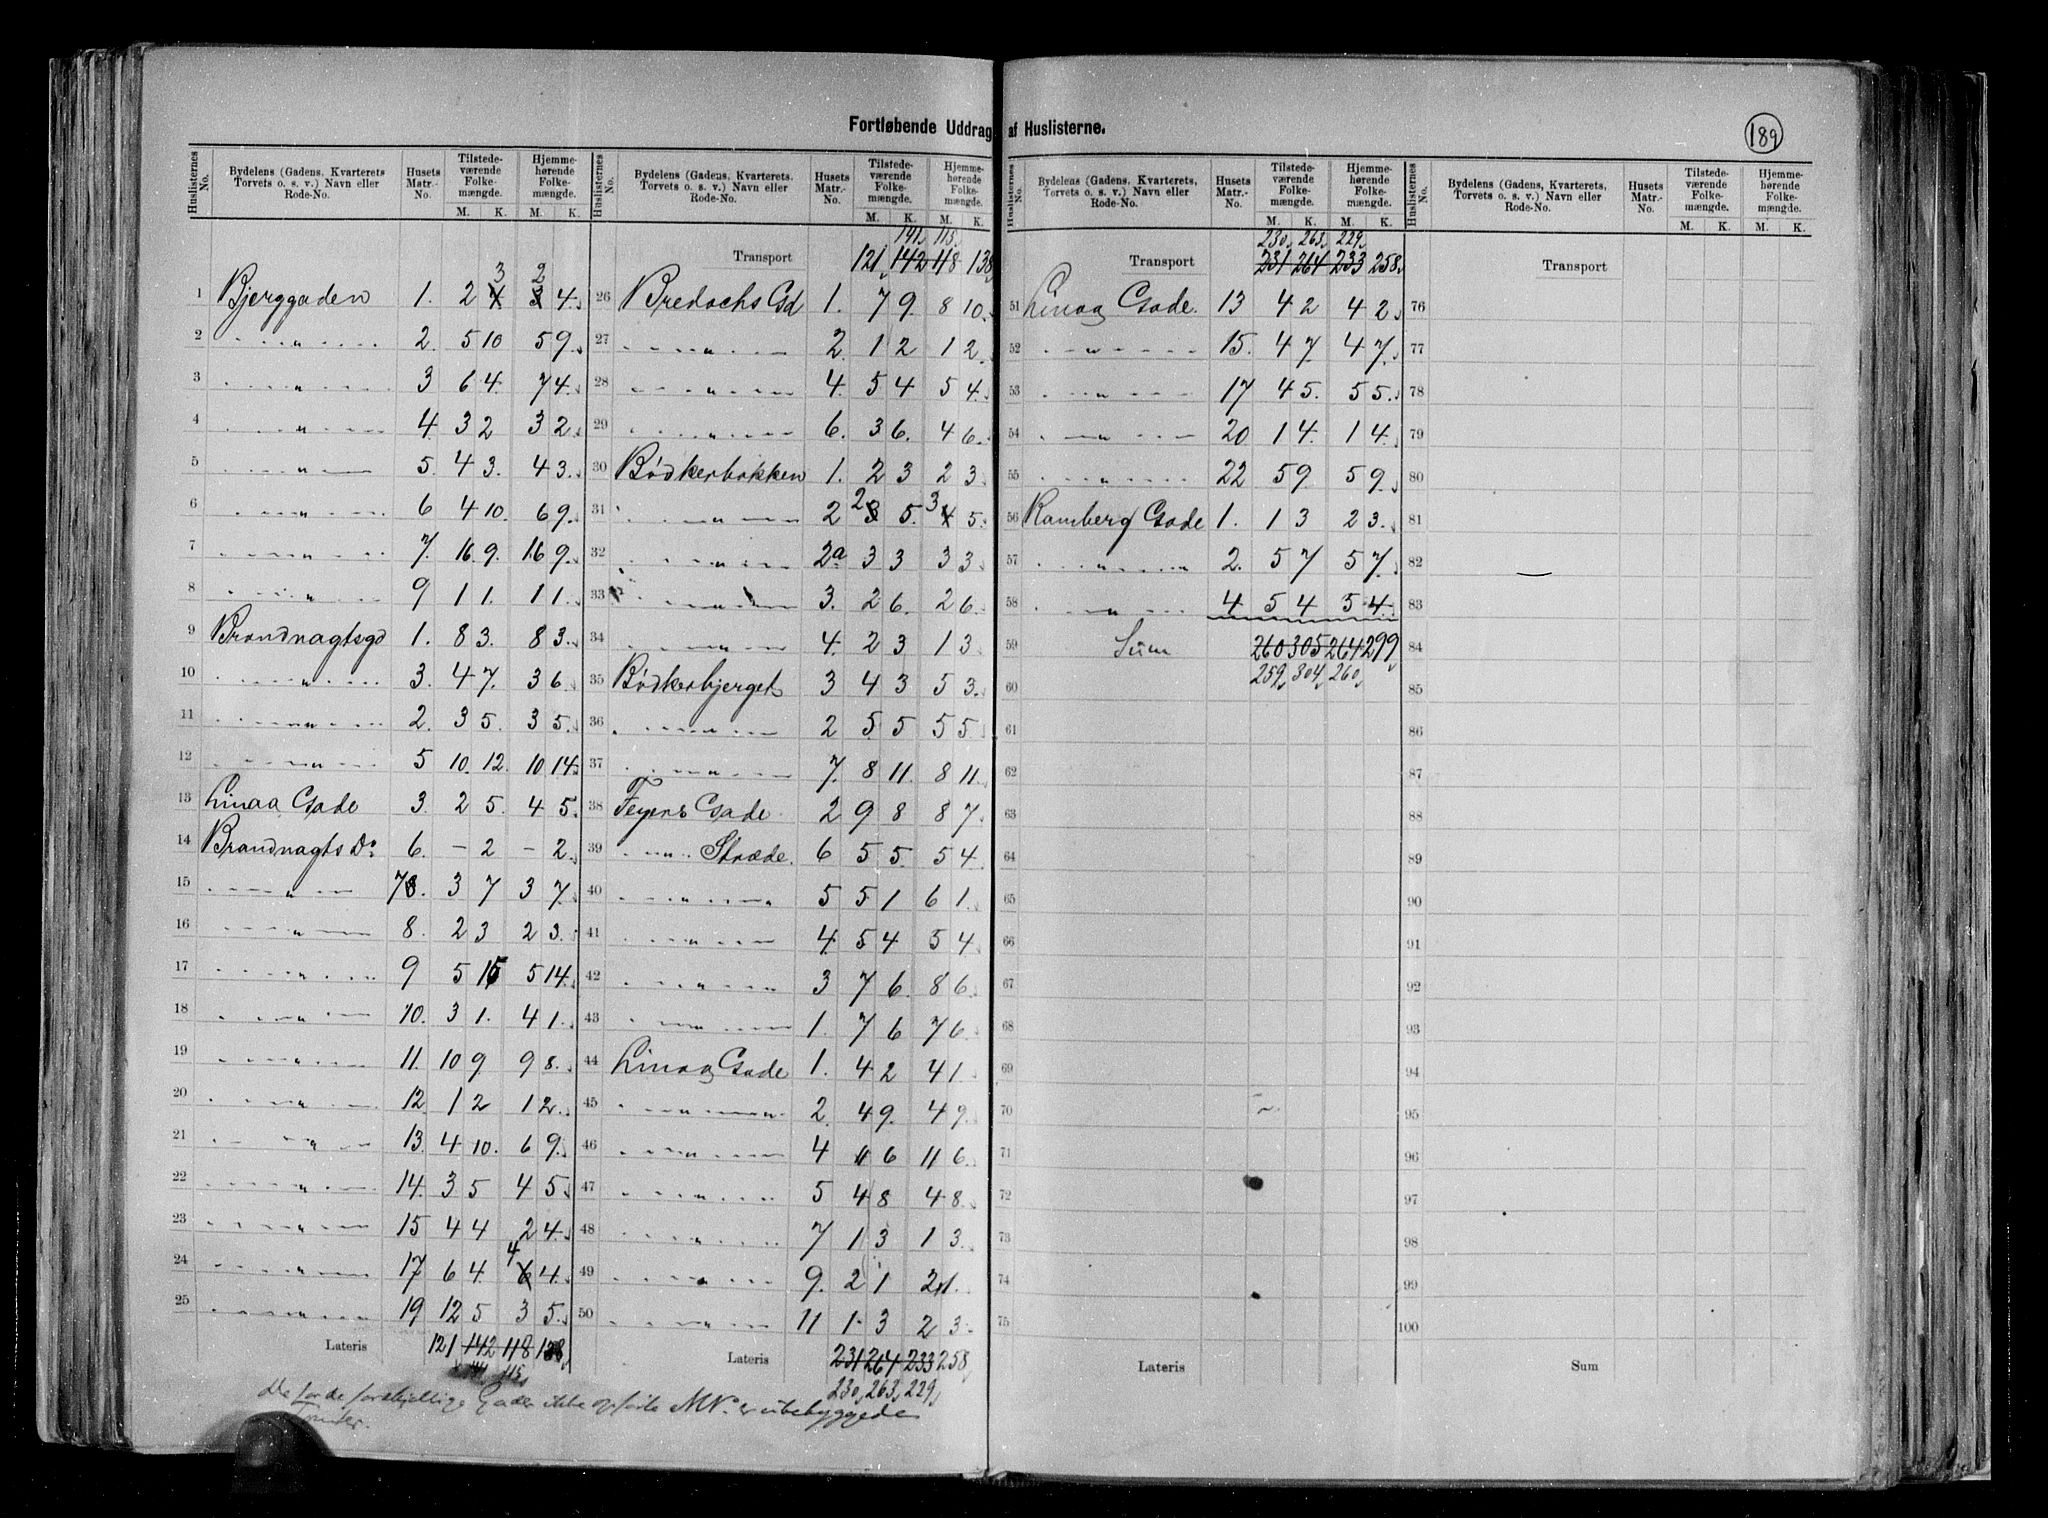 Fortløbende Uddrag af Huslisterne.
189
Huslisternes No. Bydelens (Gadens, Kvarterets Torvets o. s. v.) Navn eller Rode-No. Husets Matr.-No. Tilstedeværende Folkemængde. M. K. Hjemmehørende Folkemængde. M. K.
1 Bjerggaden 1. 2 4 3 3 2 4.
2 " 2. 5 10 5 9.
3 " 3 6 4. 7 4.
4 " 4. 3 2 3 2.
5 " 5. 4 3. 4 3.
6 " 6 4 10. 6 9.
7 " 7. 16 9. 16 9.
8 " 9 1 1. 1 1.
9 Brandvagtsgd 1. 8 3. 8 3.
10 " 3. 4 7. 3 6.
11 " 2. 3 5. 3 5.
12 " 5 10. 12. 10 14.
13 Linaa Gade 3. 2 5. 4 5.
14 Brandvagts Do 6. – 2 – 2.
15 " 7. 3 7 3 7.
16 " 8. 2 3 2 3.
17 " 9 5 15 5 14.
18 " 10. 3 1. 4 1.
19 " 11. 10 9 9 8.
20 " 12. 1 2 1 2.
21 " 13. 4 10. 6 9.
22 " 14. 3 5 4 5.
23 " 15 4 4 2 4.
24 " 17 6 4. 6 4 4.
25 " 19 12 5 3 5.
Lateris 121 142 118 138
141, 115,
De for de forskjellige Gader ikke opførte MNo. er ubebyggede
Tomter.
Huslisternes No. Bydelens (Gadens, Kvarterets Torvets o. s. v.) Navn eller Rode-No. Husets Matr.-No. Tilstedeværende Folkemængde. M. K. Hjemmehørende Folkemængde. M. K.
141, 115,
Transport 121 142 118 138
26 Bredochs Gd 1. 7 9. 8 10.
27 " 2. 1 2 1 2.
28 " 4. 5 4 5 4.
29 " 6. 3 6. 4 6.
30 Bödkerbakken 1. 2 3 2 3.
31 " 2 3 2 5. 4 3 5.
32 " 2a 3 3 3 3.
33 " 3. 2 6. 2 6.
34 " 4. 2 3 1 3.
35 Bödkerbjerget 3 4 3 5 3.
36 " 2 5. 5 5 5.
37 " 7. 8 11. 8 11.
38 Feyens Gade 2 9 8 8 7
39 " Stræde. 6 5 5. 5 4.
40 " 5 5 1 6 1.
41 " 4. 5 4 5 4.
42 " 3 7 6. 8 6.
43 " 1. 7 6 7 6.
44 Linaa Gade 1. 4 2 4 1.
45 " 2. 4 9. 4 9.
46 " 4 11 6 11 6.
47 " 5 4 8 4 8.
48 " 7 1 3 1 3.
49 " 9. 2 1 2 1.
50 " 11 1. 3 2 3.
Lateris 231 264 233 258,
230, 263, 229,
Huslisternes No. Bydelens (Gadens, Kvarterets, Torvets o. s. v.) Navn eller Rode-No. Husets Matr.-No. Tilstedeværende Folkemængde. M. K. Hjemmehørende Folkemængde. M. K.
230, 263, 229,
Transport 231 264 233 258,
51 Linaa Gade. 13 4 2 4 2.
52 " 15. 4 7. 4 7.
53 " 17 4 5. 5 5.
54 " 20 1 4. 1 4.
55 " 22 5 9. 5 9.
56 Ramberg Gade 1. 1 3 2 3.
57 " 2. 5 7 5 7.
58 " 4 5 4 5 4.
59 Sum 260 305 264 299
60 259, 304, 260,
61
62
63
64
65
66
67
68
69
70
71
72
73
74
75
Lateris
Huslisternes No. Bydelens (Gadens, Kvarterets, Torvets o. s. v.) Navn eller Rode-No. Husets Matr.-No. Tilstedeværende Folkemængde. M. K. Hjemmehørende Folkemængde. M. K.
Transport
76
77
78
79
80
81
82
83
84
85
86
87
88
89
90
91
92
93
94
95
96
97
98
99
100
Sum